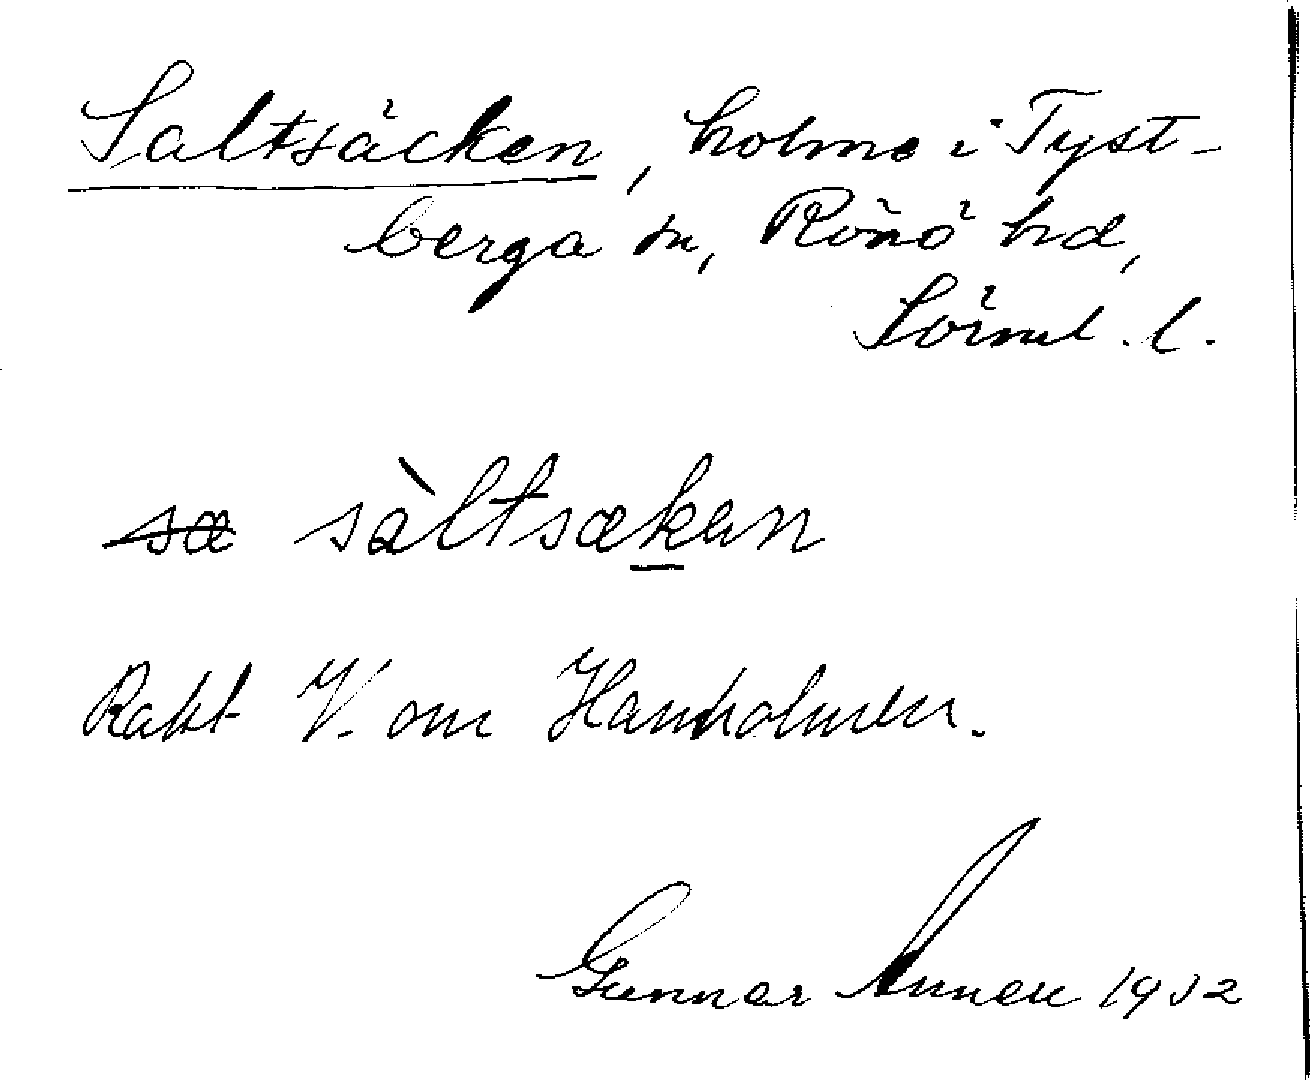 Saltsäcken, holme i Tyst-
berga sn, Rönö hd,
Sörml. l.
sæ sàltsækən
Rakt V. om Hamnholmen.
Gunnar 1932